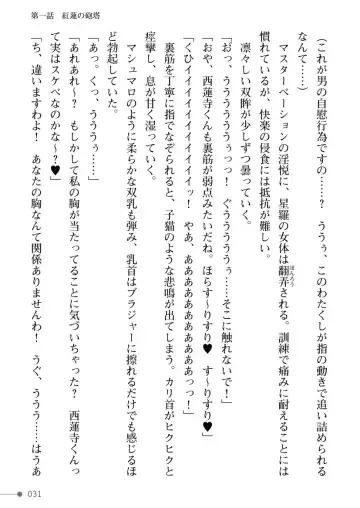 第一話　紅蓮の砲塔
（これが男の自慰行為ですの……？　ううぅ、このわたくしが指の動きで追い詰められる
なんて……）
マスターベーションの淫悦に、星羅の女体は翻弄される。訓練で痛みに耐えることには
ほんろう
慣れているが、快楽の侵食には抵抗が難しい。
凛々しい双眸が少しずつ曇っていく。
「おっ、うううううぅぅっっ！　ぐうううううぅ……そこに触れないで！」
「おや、西蓮寺くんも裏筋が弱点みたいだね。ほらす～りすり♥　す～りすり♥」
「くひイイイイイイイイイイイッ！　やぁ、あああああああああぁっっ！」
裏筋を丁寧に指でなぞられると、子猫のような悲鳴が出てしまう。カリ首がヒクヒクと
痙攣し、息が甘く湿っていく。
マシュマロのように柔らかな双乳も弾み、乳首はブラジャーに擦れるだけでも感じるほ
ど勃起していく。
「あっ。くっ、うううぅ……」
「あれあれ～？　もしかして私の胸が当たってることに気づいちゃった？　西蓮寺くんっ
て実はスケベなのかな～？♥」
「ち、違いますわよ！　あなたの胸なんて関係ありませんわ！　うぐ、ううう……はうぁ
031